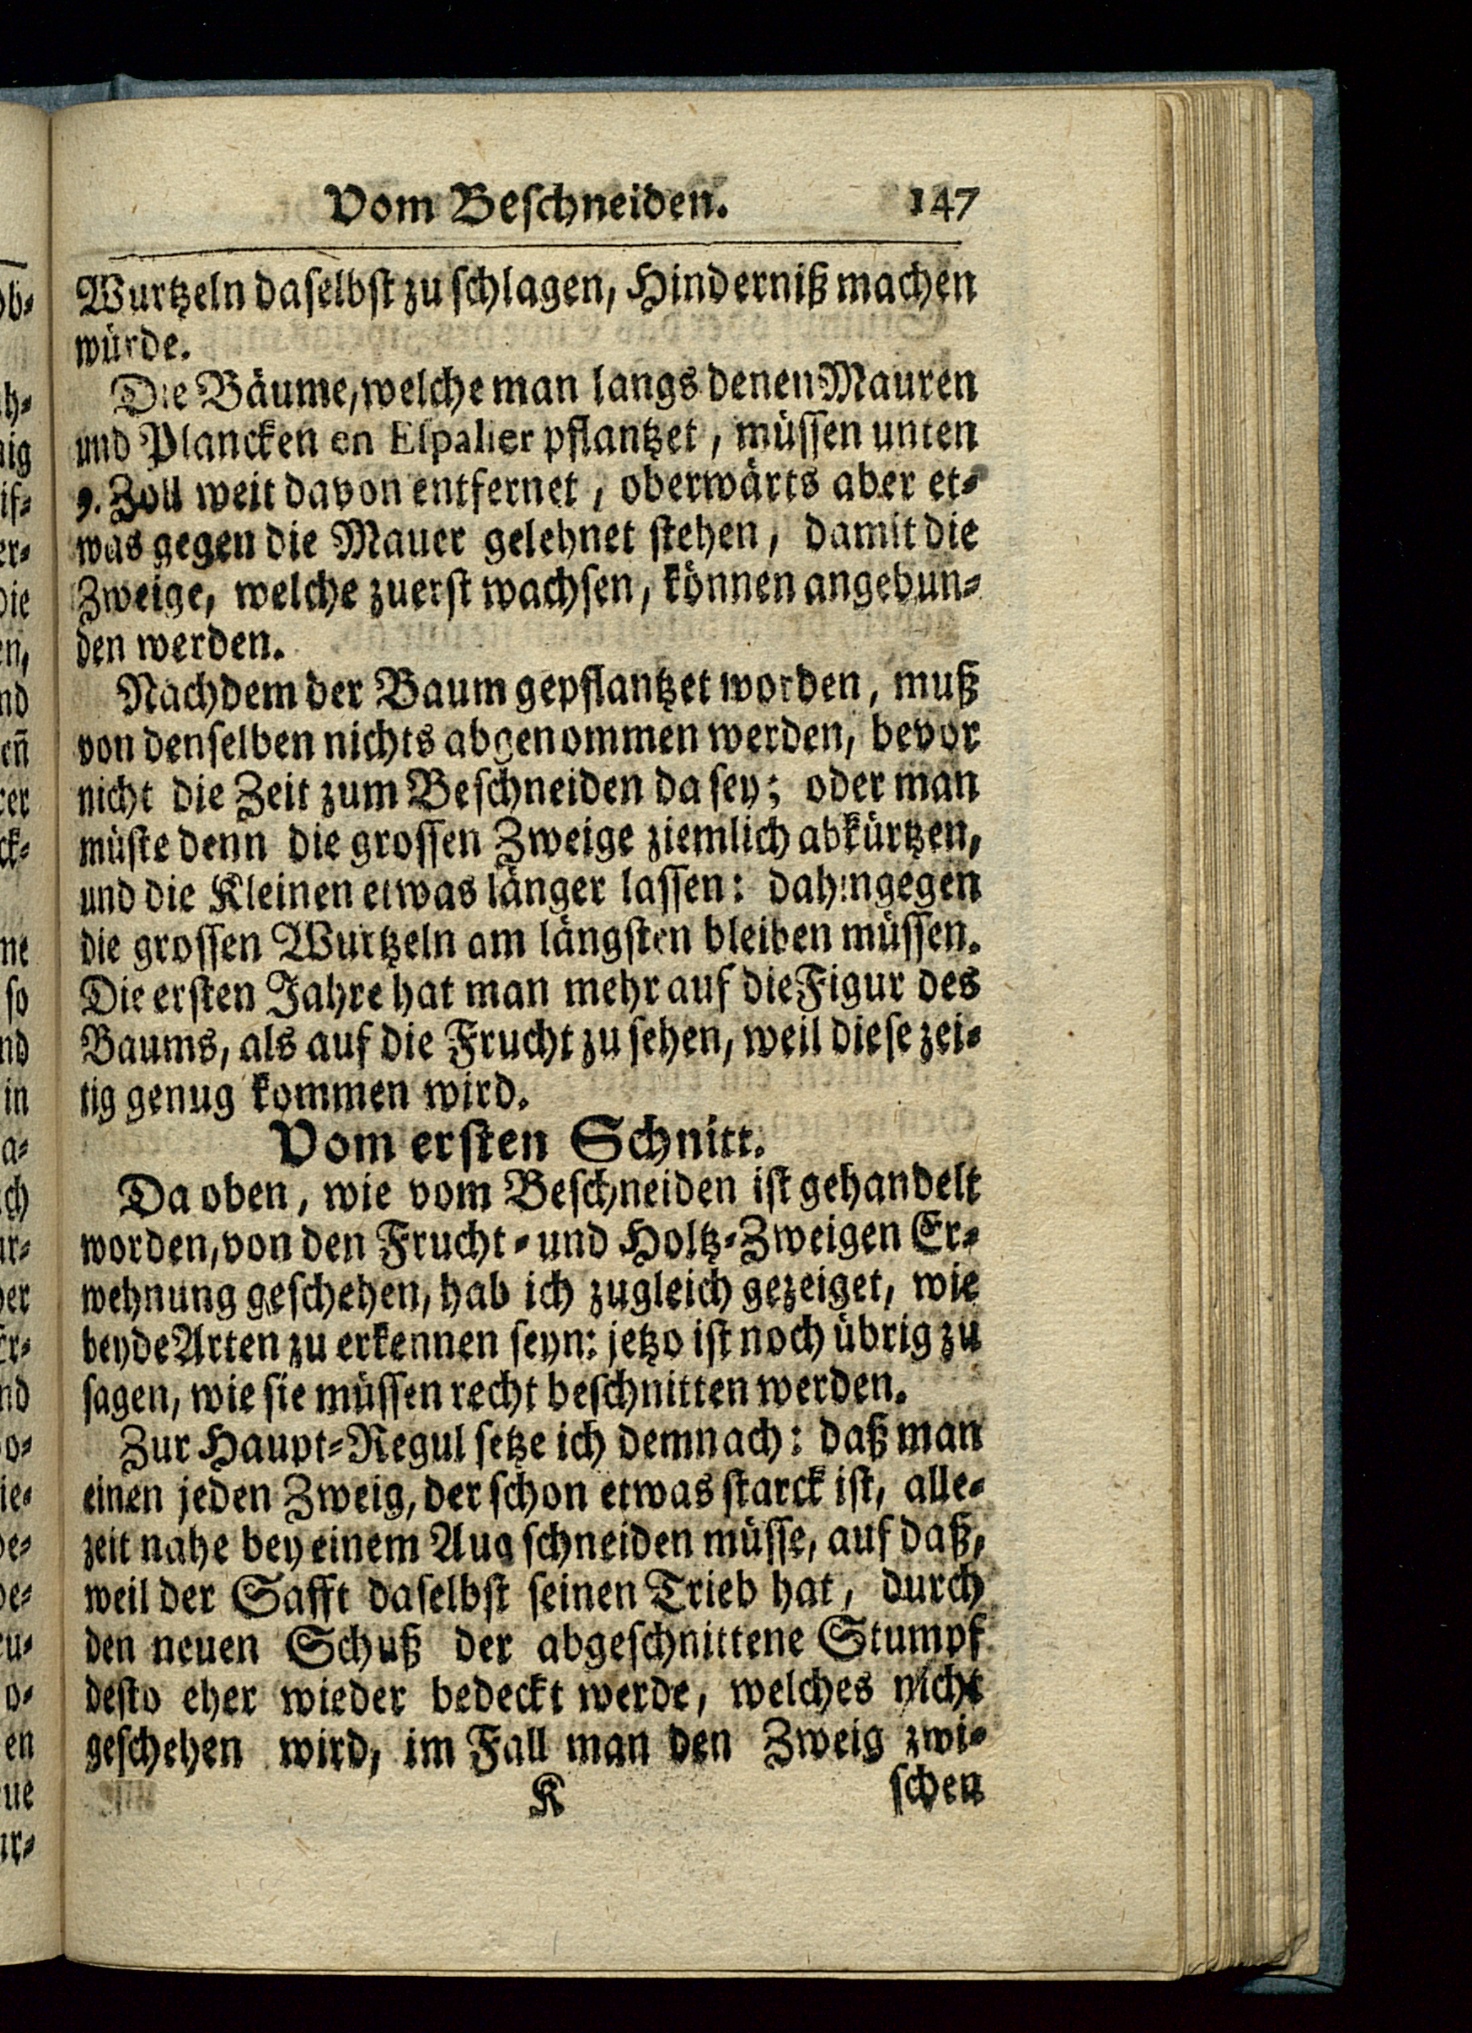 Vom Beschneiden. 147
Wurtzeln daselbst zu schlagen, Hinderniß machen
würde.
Die Bäume, welche man langs denen Mauren
und Plancken en Espalier pflantzet, müssen unten
9. Zoll weit davon entfernet, oberwärts aber et-
was gegen die Mauer gelehnet stehen, damit die
Zweige, welche zuerst wachsen, können angebun-
den werden.
Nachdem der Baum gepflantzet worden, muß
von denselben nichts abgenommen werden, bevor
nicht die Zeit zum Beschneiden da sey; oder man
müste denn die grossen Zweige ziemlich abkürtzen,
und die Kleinen etwas länger lassen: dahingegen
die grossen Wurtzeln am längsten bleiben müssen.
Die ersten Jahre hat man mehr auf die Figur des
Baums, als auf die Frucht zu sehen, weil diese zei-
tig genug kommen wird.
Vom ersten Schnitt.
Da oben, wie vom Beschneiden ist gehandelt
worden, von den Frucht- und Holtz-Zweigen Er-
wehnung geschehen, hab ich zugleich gezeiget, wie
beyde Arten zu erkennen seyn: jetzo ist noch übrig zu
sagen, wie sie müssen recht beschnitten werden.
Zur Haupt-Regul setze ich demnach: daß man
einen jeden Zweig, der schon etwas starck ist, alle-
zeit nahe bey einem Aug schneiden müsse, auf daß,
weil der Safft daselbst seinen Trieb hat, durch
den neuen Schuß der abgeschnittene Stumpf
desto eher wieder bedeckt werde, welches nicht
geschehen wird, im Fall man den Zweig zwi-
K schen